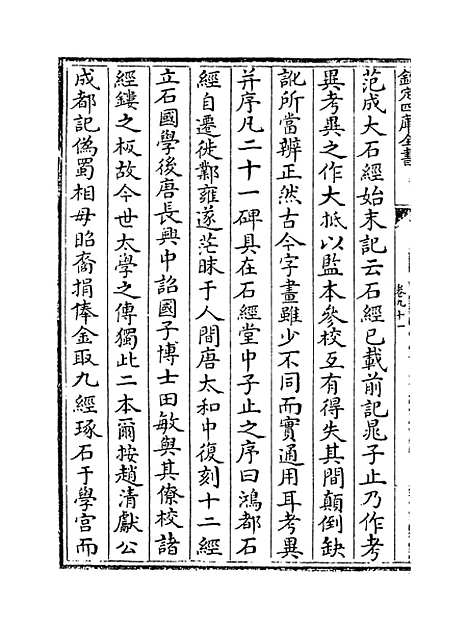 欽定四庫全書
卷九十一
范成大石經始末記云石經已載前記晁子止乃作考
異考異之作大抵以監本參校互有得失其間顛倒缺
訛所當辨正然古今字畫雖少不同而實通用耳考異
并序凡二十一碑具在石經堂中子止之序曰鴻都石
經自遷徙鄴雍遂茫昧于人間唐太和中復刻十二經
立石國學後唐長興中詔國子博士田敏與其僚校諸
經鏤之板故今世太學之傳獨此二本爾按趙清獻公
成都記偽蜀相毋昭裔捐俸金取九經琢石于學宮而